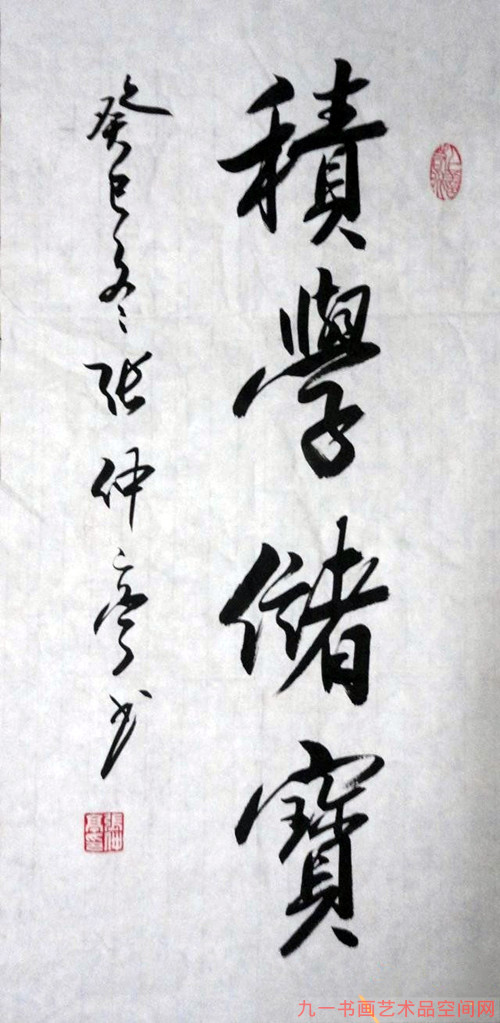 積學儲寶
癸巳冬張仲亭书
張仲亭印
九一书画艺术品空间网